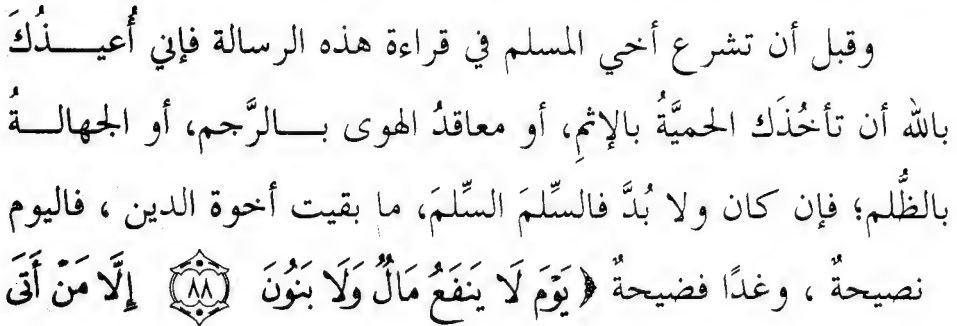 وقبل أن تشرع أخي المسلم في قراءة هذه الرسالة فإني أُعيــــذُكَ
بالله أن تأخُذَك الحميَّةُ بالإثمِ، أو معاقدُ الهوى بـــالرَّجم، أو الجهالــــةُ
بالظُّلم؛ فإن كان ولا بُدَّ فالسِّلمَ السِّلمَ، ما بقيت أخوة الدين ، فاليوم
نصيحةٌ ، وغدًا فضيحةٌ ﴿ يَوْمَ لَا يَنفَعُ مَالٌ وَلَا بَنُونَ ٨٨ إِلَّا مَنْ أَتَى